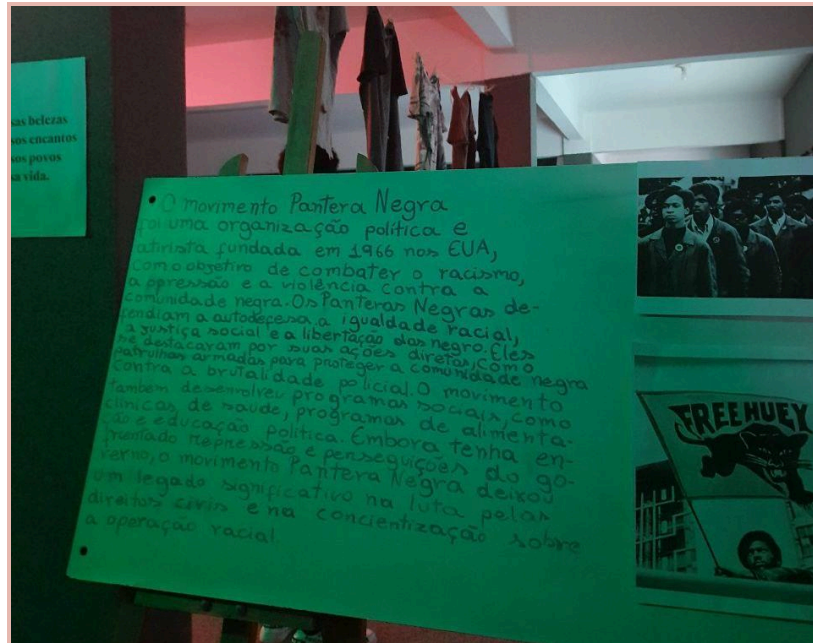 as belezas
sos encantos
sos povos
a vida.
O movimento Pantera Negra
foi uma organização política e
ativista fundada em 1966 nos EUA,
com o objetivo de combater o racismo,
a opressão e a violência contra a
comunidade negra. Os Panteras Negras de-
fendiam a autodefesa a igualdade racial,
a justiça social e a libertação dos negro. Eles
se destacaram por suas ações diretas, como
patrulhas armadas para proteger a comunidade negra
contra a brutalidade policial. O movimento
também desenvolveu programas sociais, como
clínicas de saúde, programas de alimenta-
ção e educação política. Embora tenha en-
frentado repressão e perseguições do go-
verno, o movimento Pantera Negra deixou
um legado significativo na luta pelas
direitos civis e na concientização sobre
a operação racial.
FREE HUEY